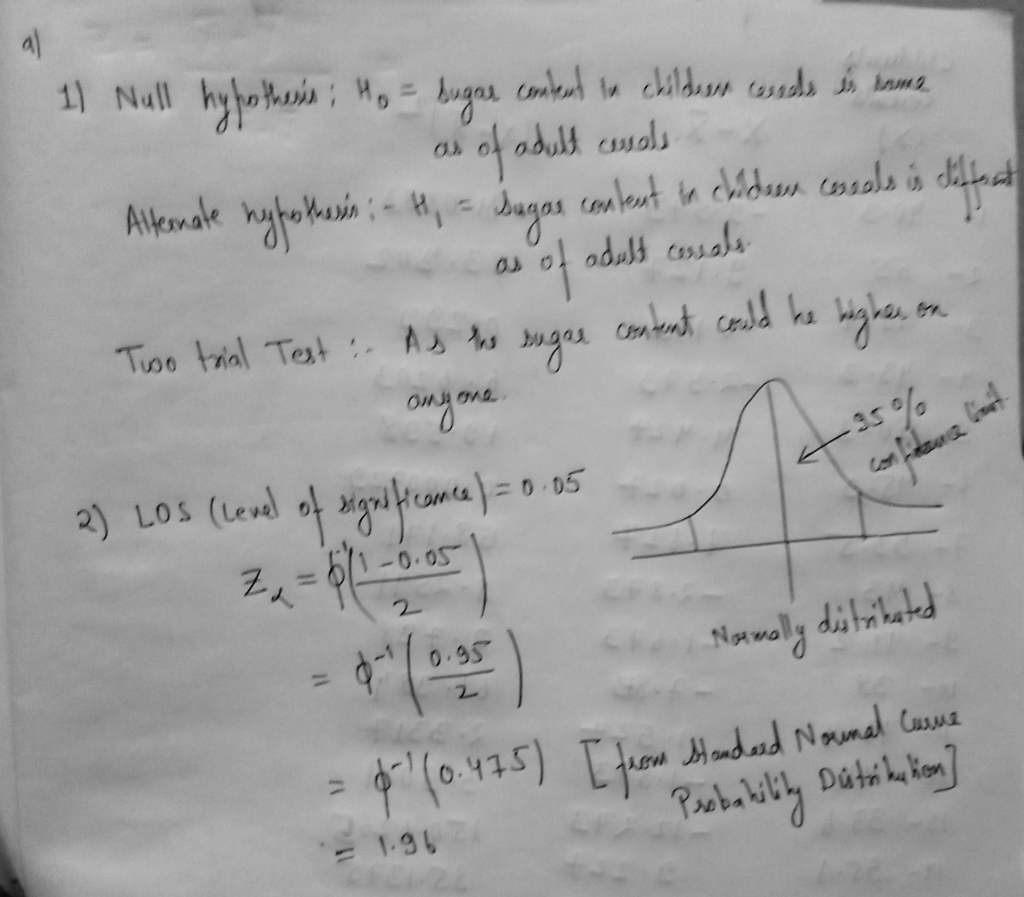 a)
1) Null hypothesis : H₀ = Sugar content in children cereals is same
as of adult cereals.
Alternate hypothesis :- H₁ = Sugar content in children cereals is different
as of adult cereals.
Two trial Test :- As the sugar content could be higher on
anyone.
95%
confidence limit.
2) LOS (Level of significance) = 0.05
Z_α = ϕ⁻¹((1-0.05)/2)
Normally distributed
= ϕ⁻¹(0.95/2)
= ϕ⁻¹(0.475) [from Standard Normal Curve
Probability Distribution]
= 1.96